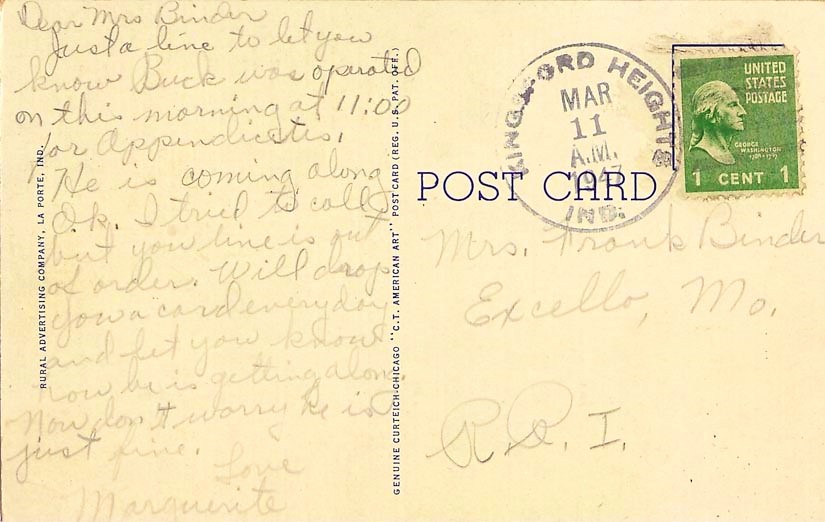 Dear Mrs Binder
Just a line to let you
know Buck was operated
on this morning at 11:00
for Appendicitis.
He is coming along
O.k. I tried to call
but you line is out
of order. Will drop
you a card everyday
and let you know
how he is getting along.
Now don't worry he is
just fine.
Love
Marguerite
RURAL ADVERTISING COMPANY, LA PORTE, IND.
GENUINE CURTEICH-CHICAGO "C.T. AMERICAN ART" POST CARD (REG. U.S. PAT. OFF.)
POST CARD
KINGSFORD HEIGHTS
MAR
11
A.M.
1947
IND.
UNITED
STATES
POSTAGE
GEORGE
WASHINGTON
1789-1797
1 CENT 1
Mrs. Frank Binder
Excello, Mo.
R.R. I.